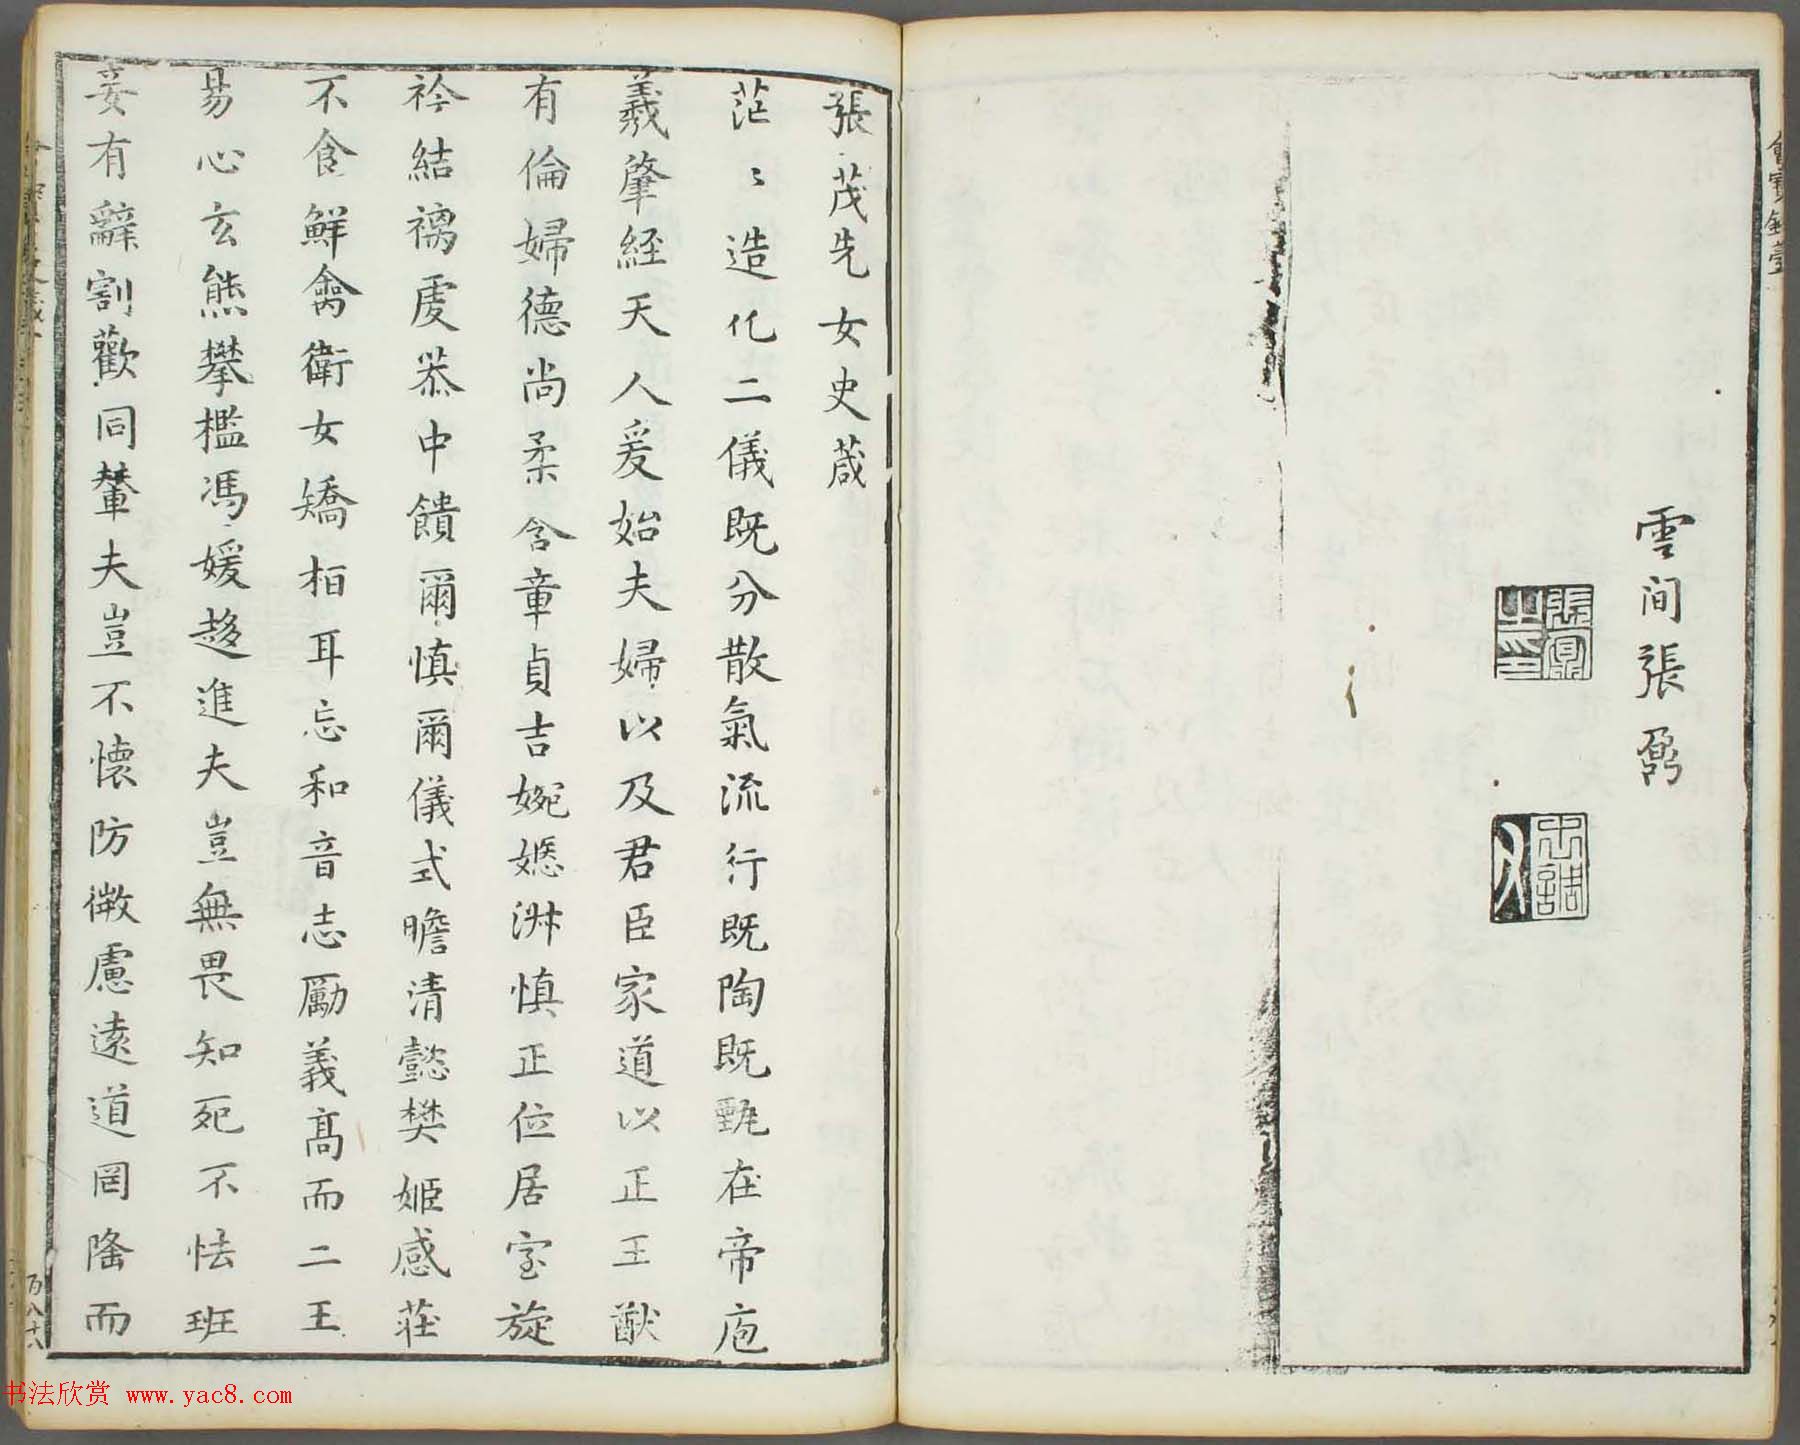 雲间張鼐
張鼐之印
世調父
張茂先女史葴
茫〻造化二儀既分散氣流行既陶既甄在帝庖
羲肇経天人爰始夫婦以及君臣家道以正王猷
有倫婦德尚柔含章貞吉婉嫕淋慎正位居室旋
衿結褵虔恭中饋爾慎爾儀式瞻清懿樊姬感莊
不食鮮禽衛女矯栢耳忘和音志勵義高而二王
易心玄熊攀檻馮媛趍進夫豈無畏知死不怯班
妾有辭割歡同輦夫豈不懷防微慮遠道罔隆而
书法欣赏 www.yac8.com